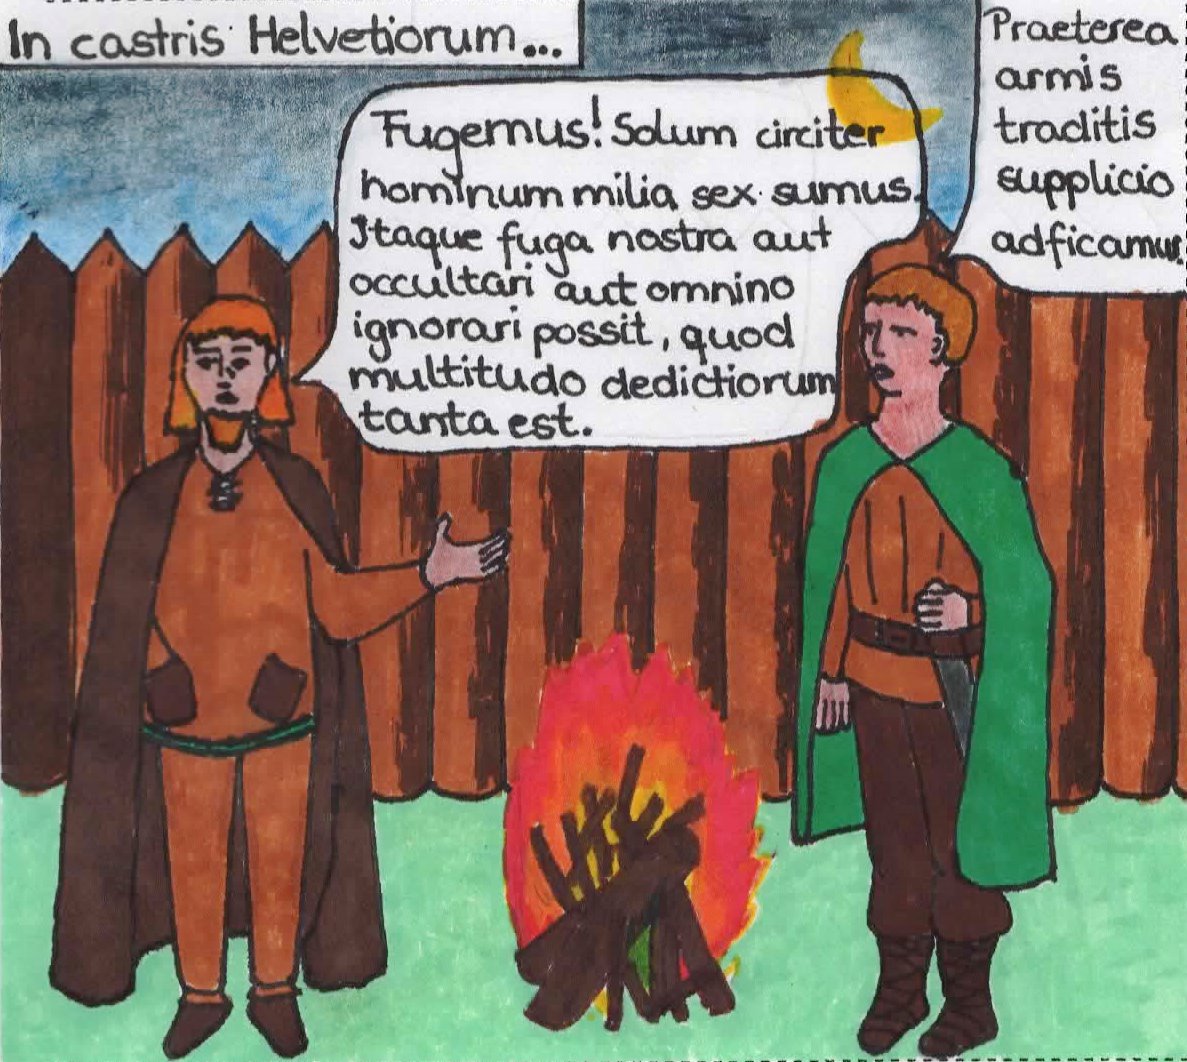 In castris Helvetiorum...
Fugemus! Solum circiter
hominum milia sex sumus.
Itaque fuga nostra aut
occultari aut omnino
ignorari possit, quod
multitudo dedictiorum
tanta est.
Praeterea
armis
traditis
supplicio
adficamur.